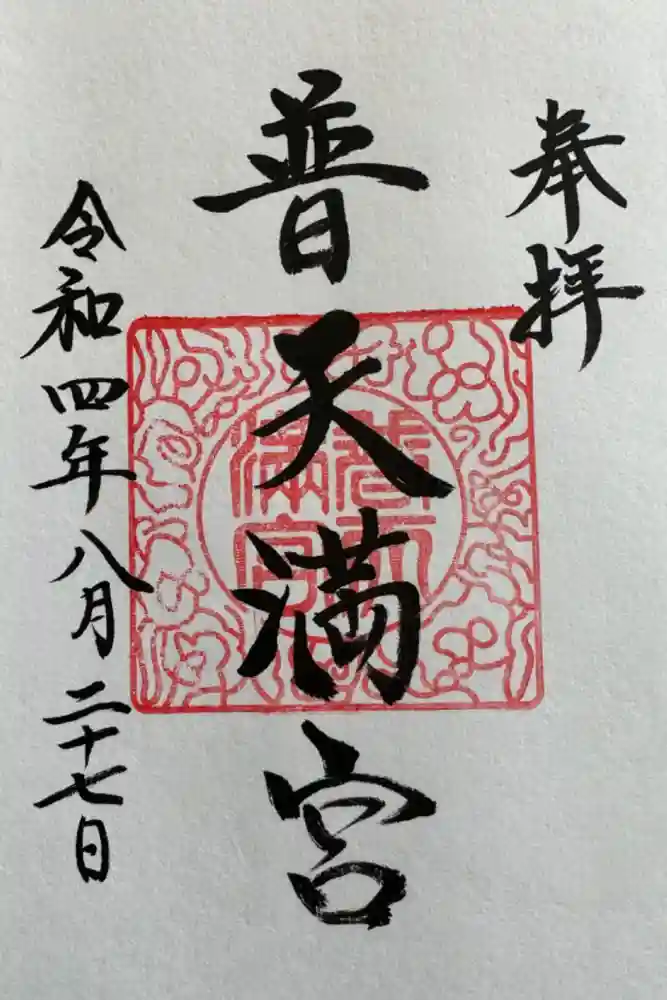 奉拝
普天満宮
令和四年八月二十七日